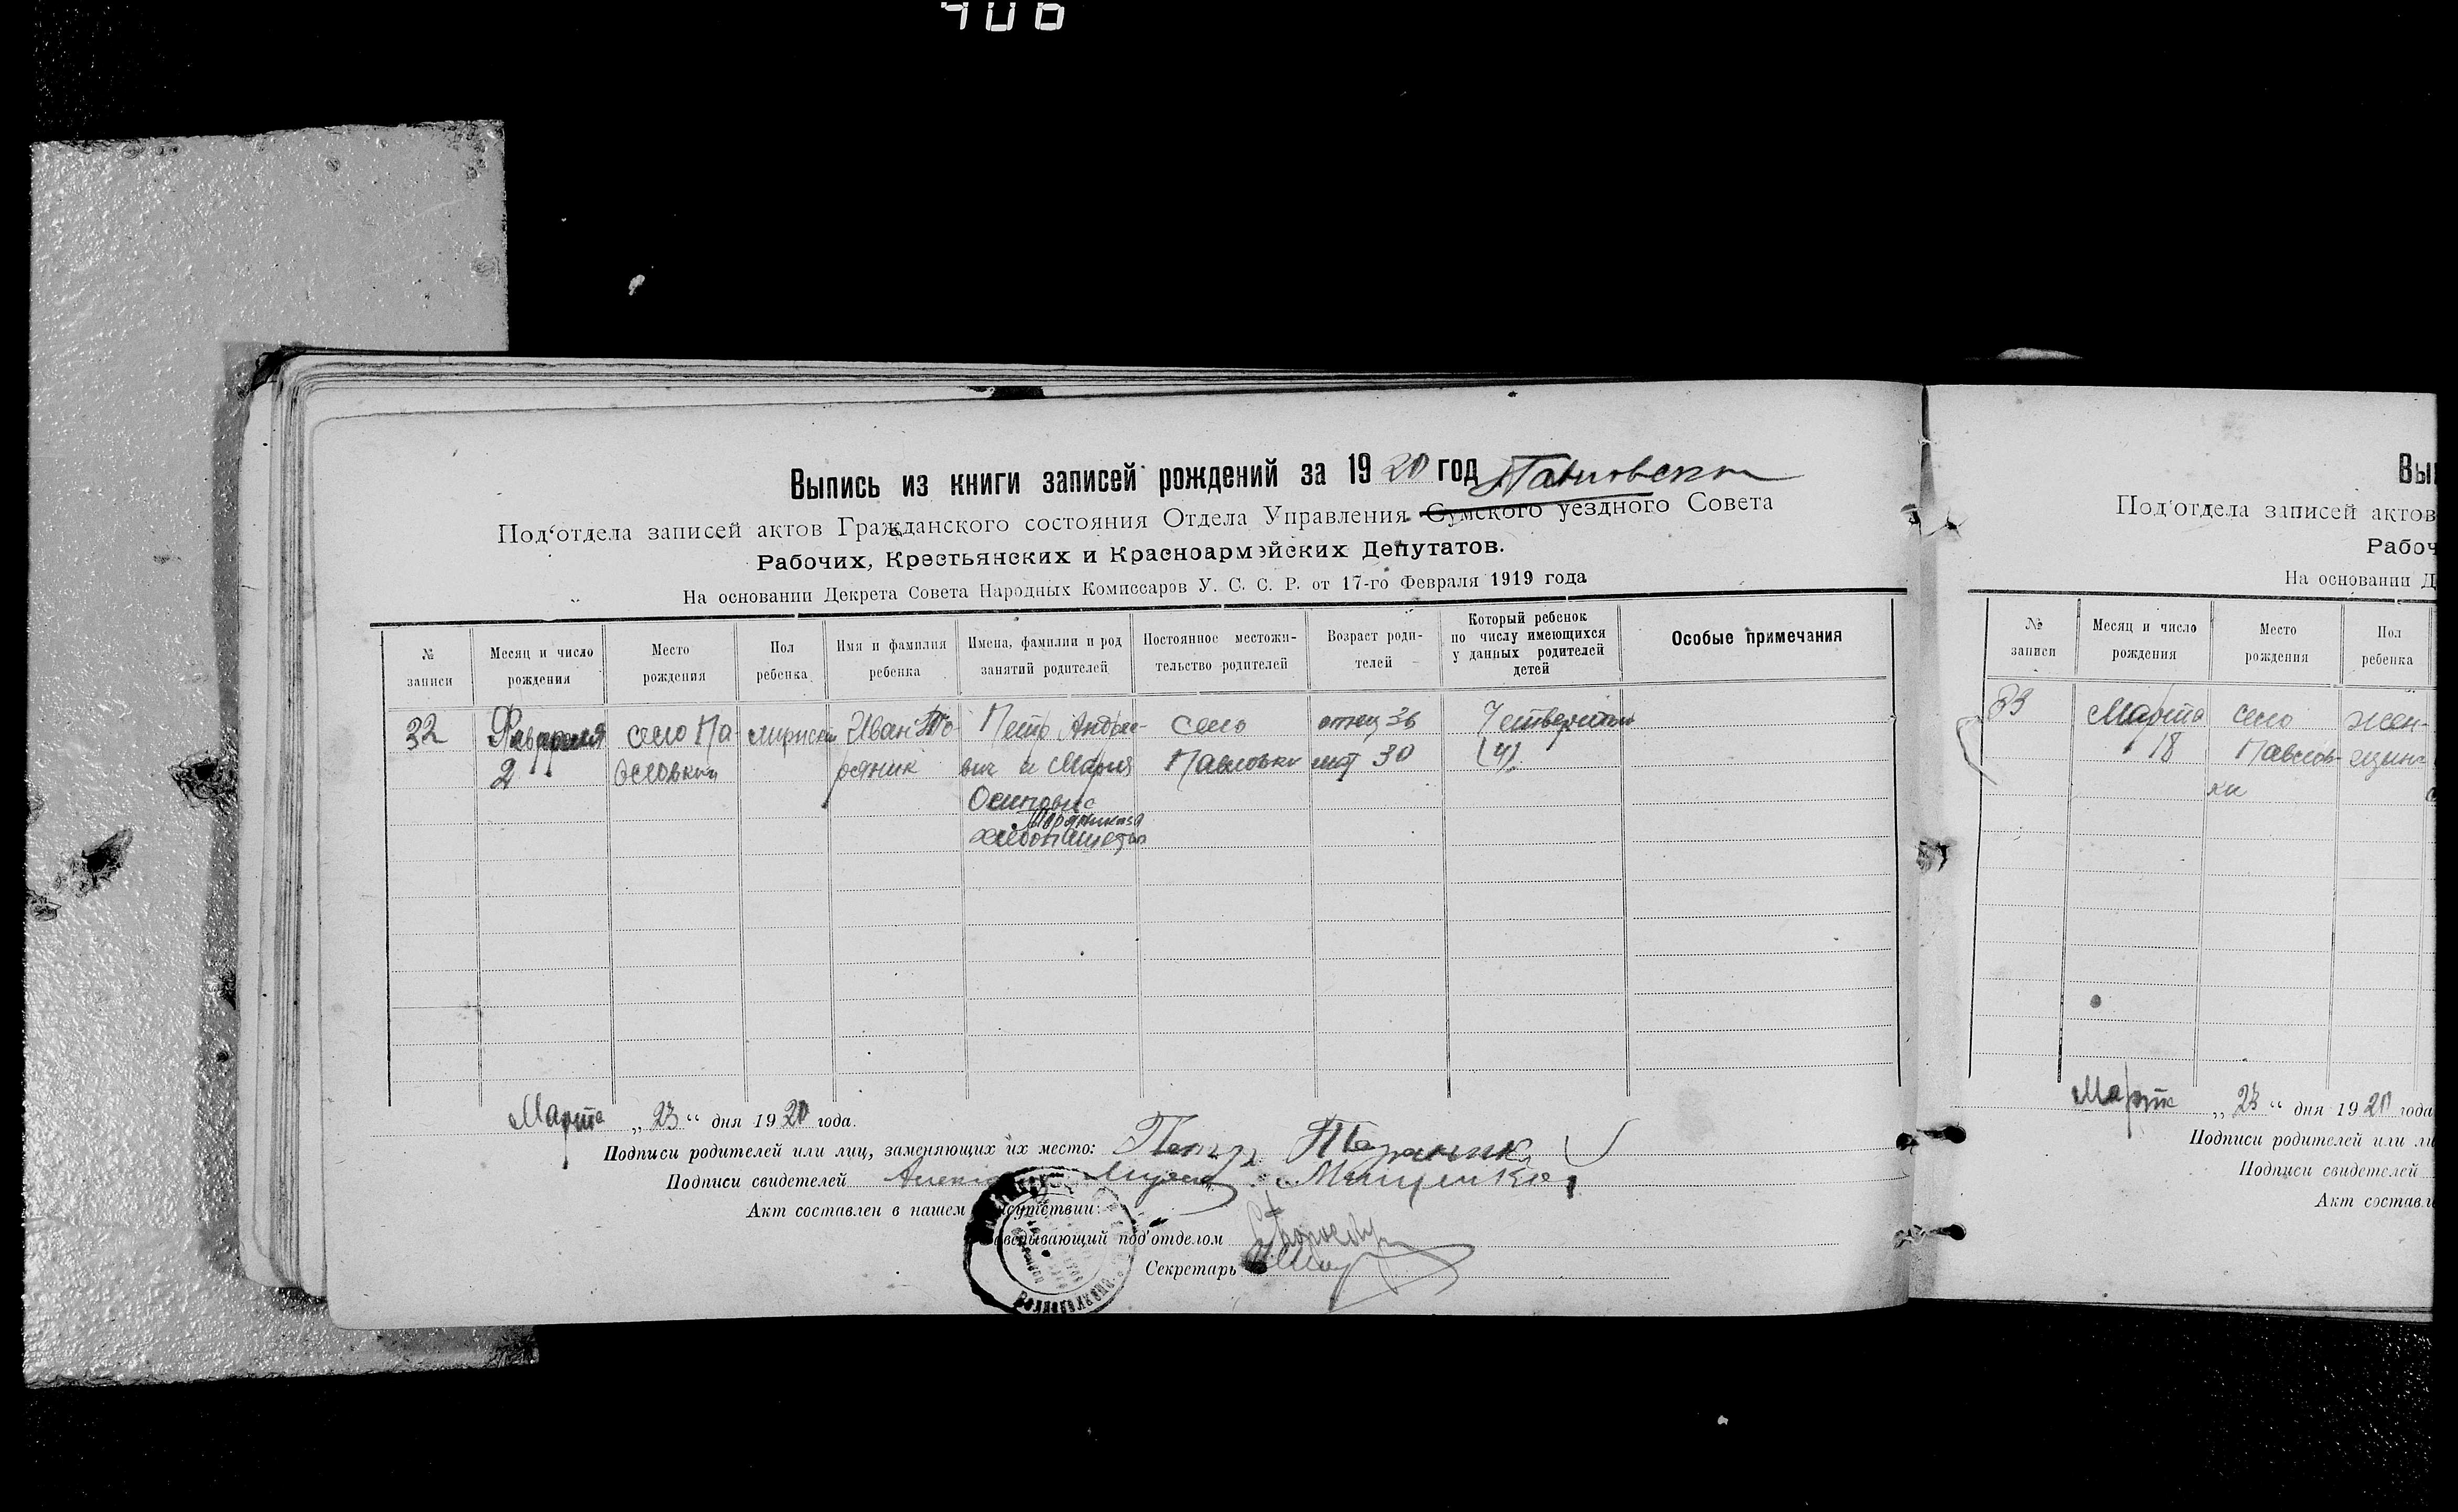 406
Выпись из книги записей рождений за 1920 год Павловского
Под'отдела записей актов Гражданского состояния Отдела Управления Сумского уездного Совета
Рабочих, Крестьянских и Красноармейских Депутатов.
На основании Декрета Совета Народных Комиссаров У. С. С. Р. от 17-го Февраля 1919 года
№ записи
Месяц и число рождения
Место рождения
Пол ребенка
Имя и фамилия ребенка
Имена, фамилии и род занятий родителей
Постоянное местожи-
тельство родителей
Возраст роди-
телей
Который ребенок
по числу имеющихся
у данных родителей
детей
Особые примечания
32
Февраля
2
село Па
вловки
Иван
Петр Андрее-
вич и Мария
Осиповна
хлебопашество
село
Павловки
отец 36
мат 30
Четвертый
(4)
Марта „23“ дня 1920 года.
Подписи родителей или лиц, заменяющих их место: Петр
Подписи свидетелей
Акт составлен в нашем присутствии:
Заведывающий под'отделом
Секретарь
Вы
Под'отдела записей актов
Рабоч
На основании Д
№ записи
Месяц и число рождения
Место рождения
Пол ребенка
33
Марта
18
село
Павлов-
ки
жен-
Марта „23“ дня 1920 года
Подписи родителей или ли
Подписи свидетелей
Акт составле